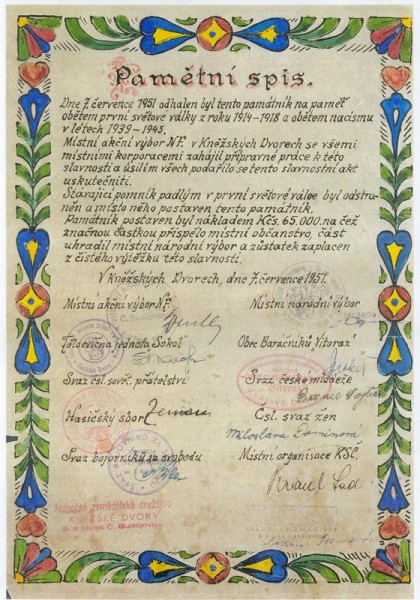 Pamětní spis.
Dne 7. července 1951 odhalen byl tento památník na paměť
obětem první světové války z roku 1914-1918 a obětem nacismu
v letech 1939-1945.
Místní akční výbor N.F. v Kněžských Dvorech se všemi
místními korporacemi zahájil přípravné práce k této
slavnosti a úsilím všech podařilo se tento slavnostní akt
uskutečniti.
Stávající pomník padlým v první světové válce byl odstra-
něn a místo něho postaven tento památník.
Památník postaven byl nákladem Kčs. 65.000.- na čež
značnou částkou přispělo místní občanstvo, část
uhradil místní národní výbor a zůstatek zaplacen
z čistého výtěžku této slavnosti.
V Kněžských Dvorech, dne 7. července 1951.
Místní akční výbor N.F. Místní národní výbor
Tělocvičná jednota Sokol Obec Baráčníků Vitoraz
Svaz čsl. sovět. přátelství Svaz české mládeže
Hasičský sbor Zeman Čsl. svaz žen
Miloslava
Svaz bojovníků za svobodu Místní organisace KSČ.
Jednotné zemědělské družstvo
KNĚŽSKÉ DVORY
Č. Budějovice